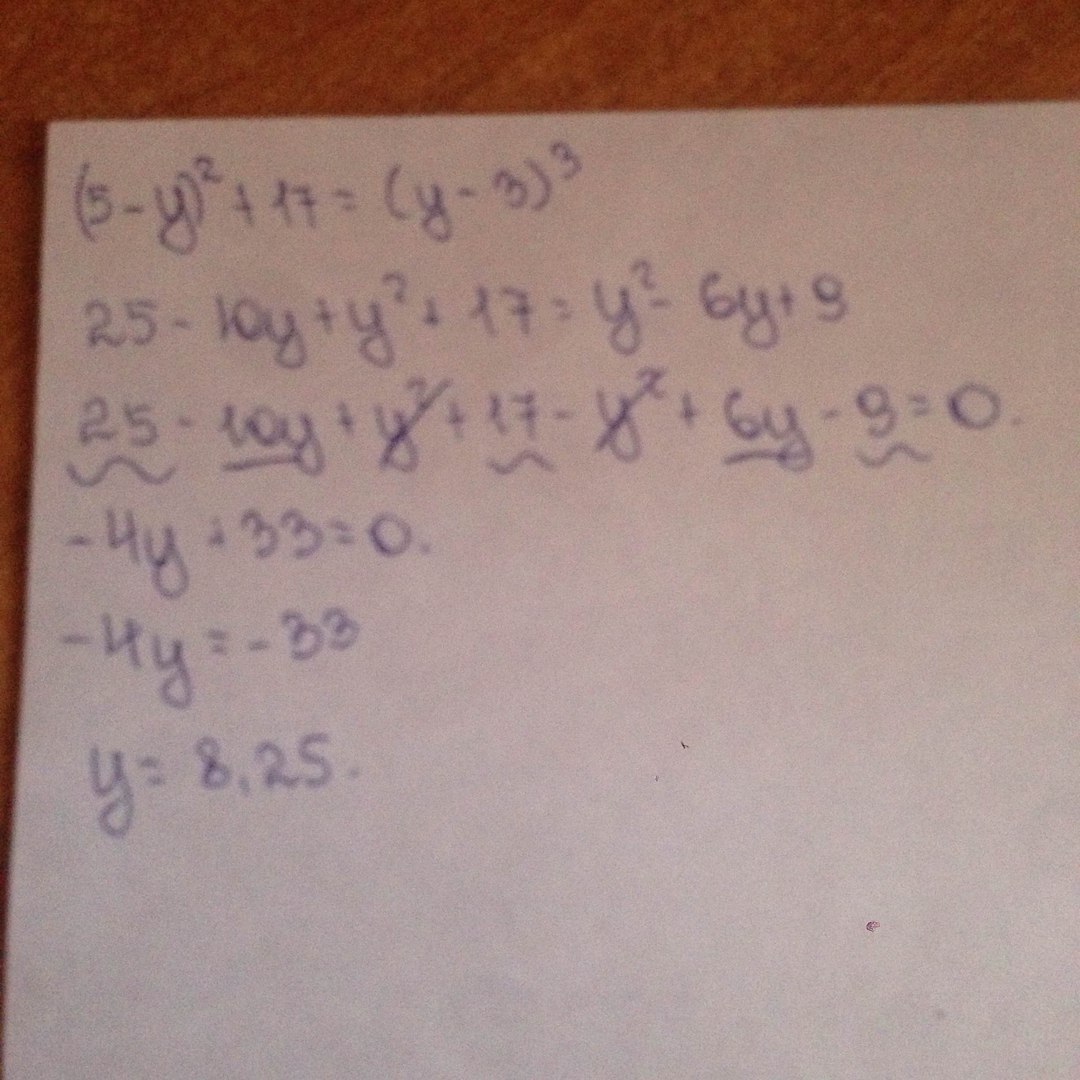 (5-y)³+17=(y-3)³
25-10y+y²+17=y²-6y+9
25-10y+y²+17-y²+6y-9=0.
-4y+33=0.
-4y=-33
y=8,25.